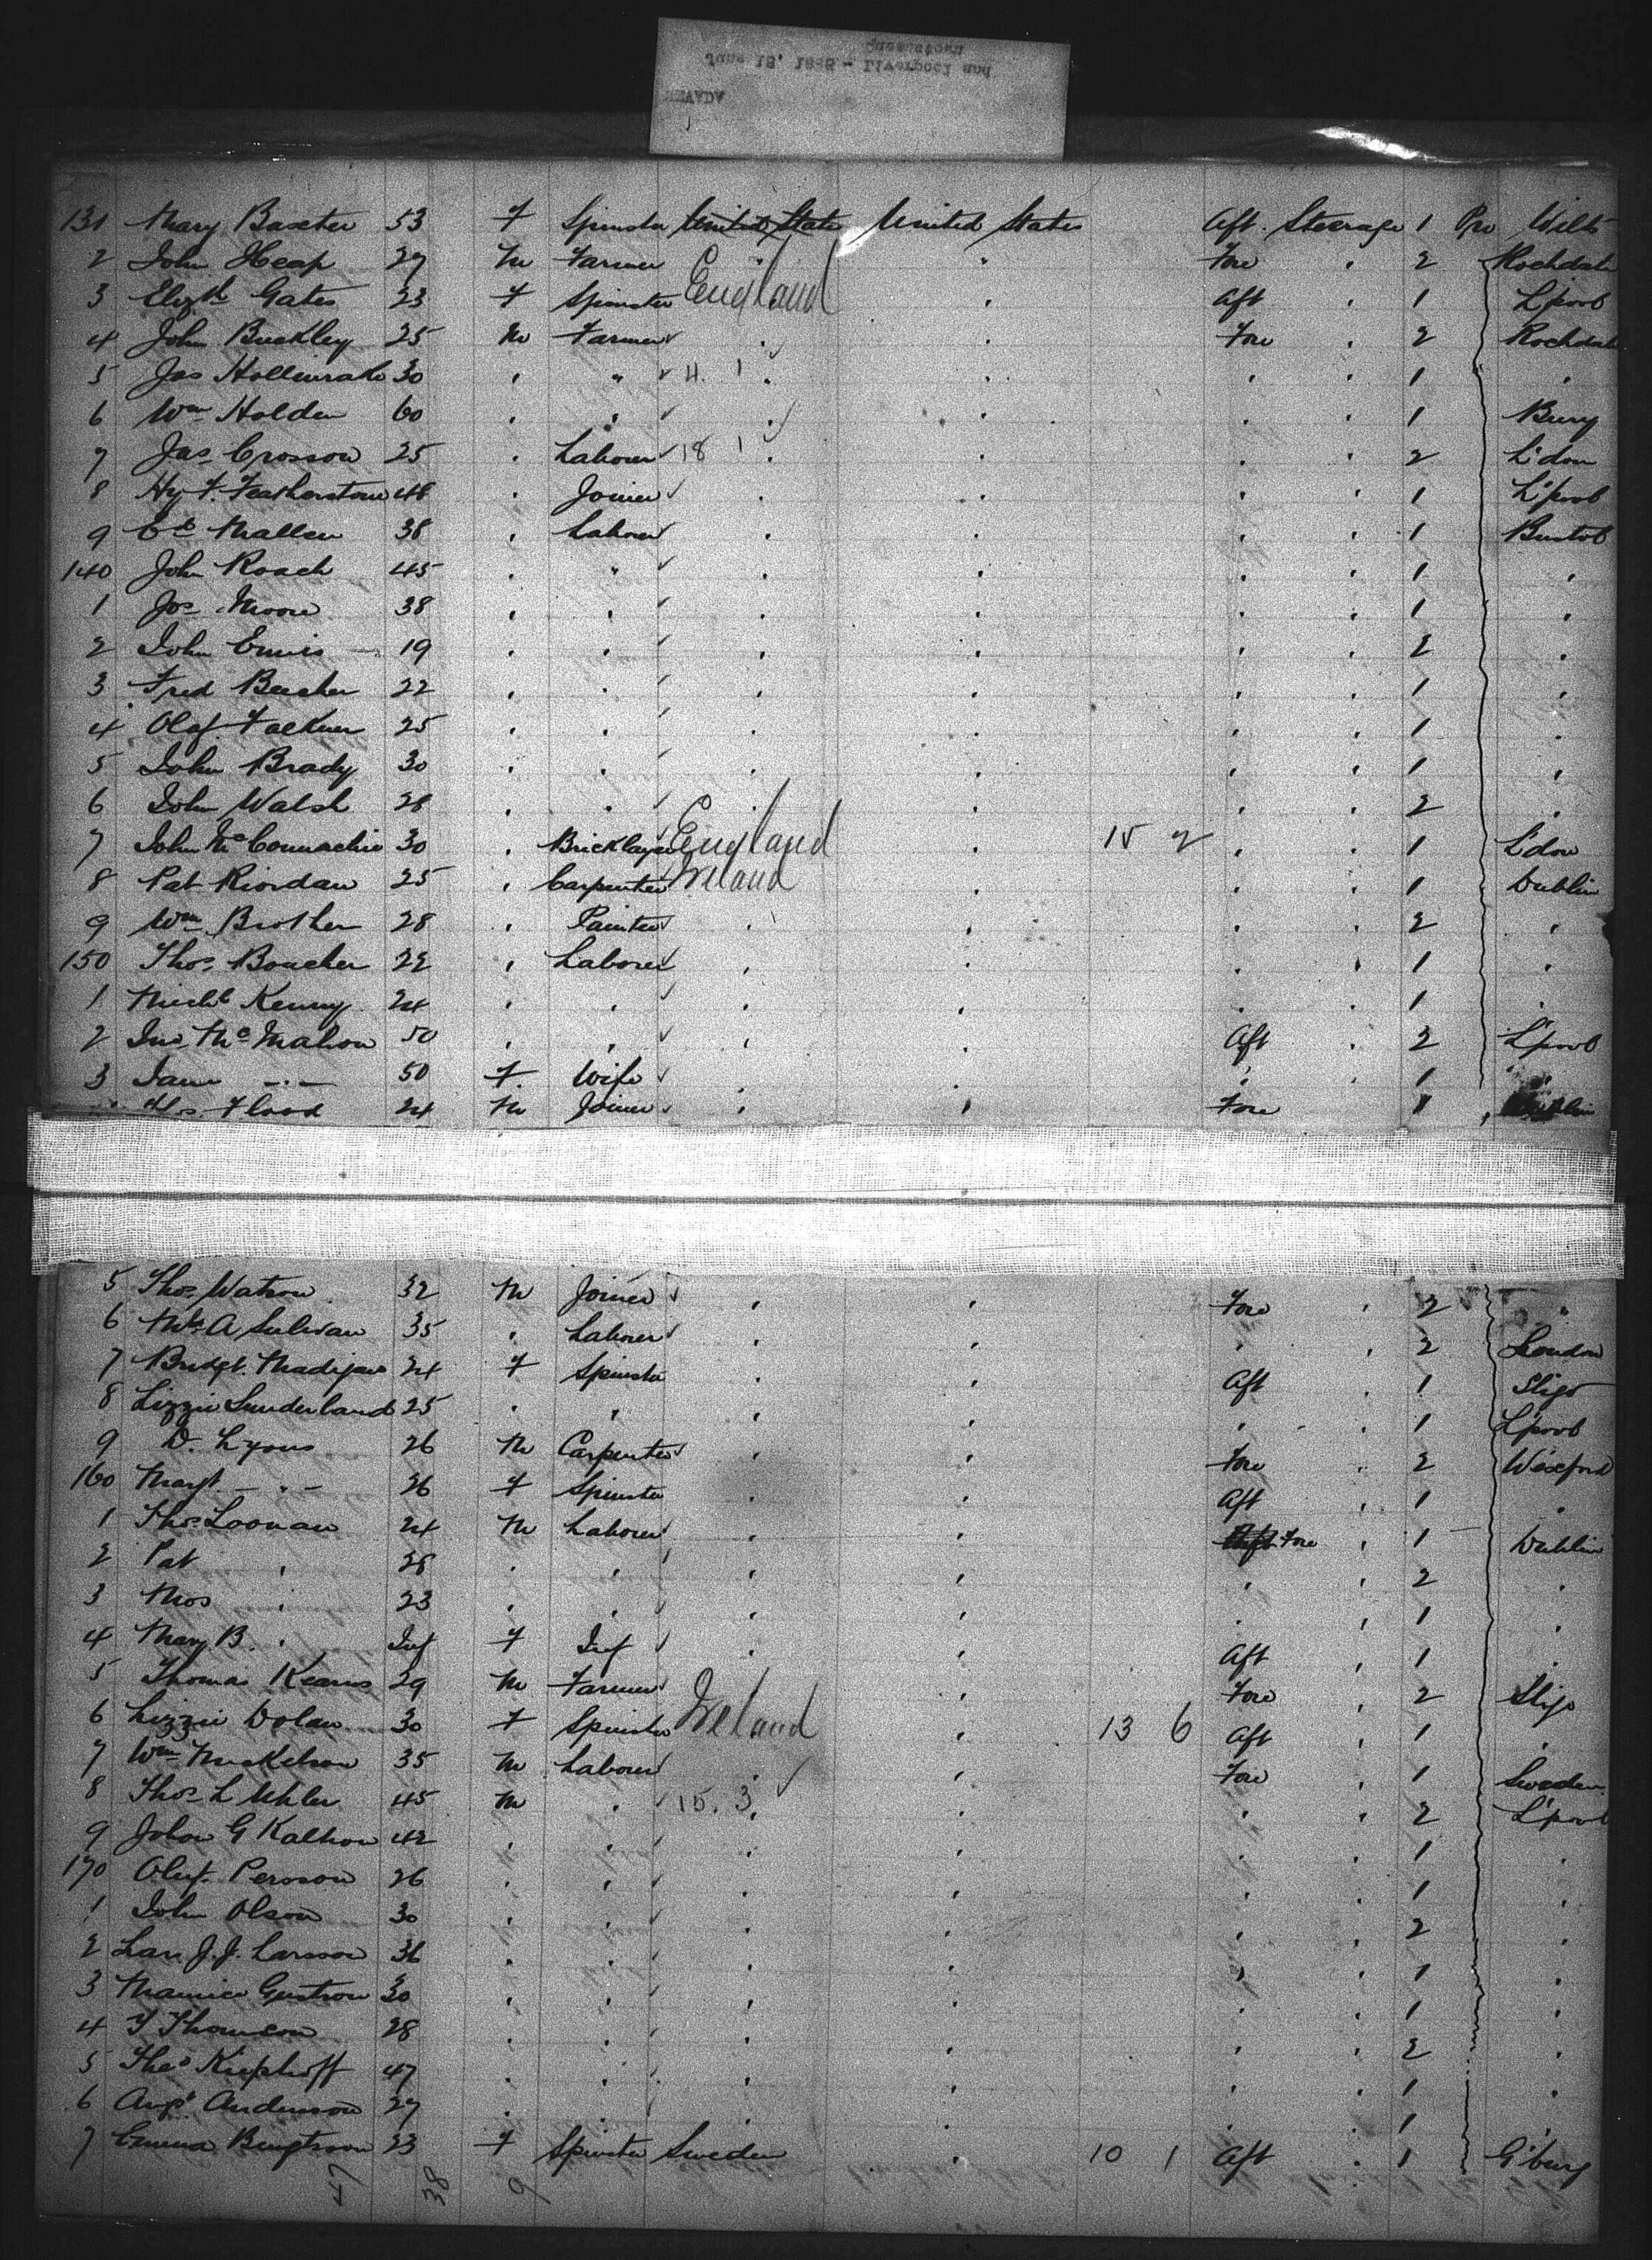 Queenstown
June 18, 1885 - Liverpool and
NEVADA
131 Mary Baxter 53 F Spinster United States United States Aft. Steerage 1 Pro Wilts
2 John Heap 27 M Farmer " " Fore " 2 Rochdale
3 Elizth Gates 23 F Spinster England " Aft " 1 L'pool
4 John Buckley 25 M Farmer " " Fore " 2 Rochdale
5 Jas Hollinrake 30 " " 4. 1 " " " " 1 "
6 Wm Holden 60 " " " " " " 1 Bury
7 Jas Crosson 25 " Laborer 18 1 " " " " 2 L'don
8 Hy F. Featherstone 48 " Joiner " " " " 1 L'pool
9 Ed Mallen 38 " Laborer " " " " 1 Bristol
140 John Roach 45 " " " " " " 1 "
1 Jos Moore 38 " " " " " " 1 "
2 John Ennis 19 " " " " " " 2 "
3 Fred Beecher 22 " " " " " " 1 "
4 Olaf Falkner 25 " " " " " " 1 "
5 John Brady 30 " " " " " " 1 "
6 John Walsh 28 " " " " " " 2 "
7 John McConnachie 30 " Bricklayer England " 15 2 " " 1 L'don
8 Pat Riordan 25 " Carpenter Ireland " " " 1 Dublin
9 Wm Brother 28 " Painter " " " " 2 "
150 Thos Boucher 22 " Laborer " " " " 1 "
1 Michl Kenny 24 " " " " " " 1 "
2 Jno McMahon 50 " " " " Aft " 2 L'pool
3 Jane -"- 50 F. Wife " " " " 1 "
Flood 24 M Joiner " " Fore 1
5 Thos Watson 32 M Joiner " " Fore " 2 "
6 A Sulivan 35 " Laborer " " " " 2 London
7 Bridgt. Madigan 24 F Spinster " " Aft " 1 Sligo
8 Lizzie Sunderland 25 " " " " " " 1 L'pool
9 D. Lyons 26 M Carpenter " " Fore " 2 Wexford
160 Margt -"- 26 F Spinster " " Aft " 1 "
1 Thos Loonan 24 M Laborer " " Aft Fore " 1 Dublin
2 Pat " 28 " " " " " " 2 "
3 Thos " 23 " " " " " " 1 "
4 Mary B. " Inf F Inf " " Aft " 1 "
5 Thomas Kearns 29 M Farmer " " Fore " 2 Sligo
6 Lizzie Dolan 30 F Spinster Ireland " 13 6 Aft " 1 "
33
7 Wm Mickelson 35 M Laborer " " Fore " 1 Sweden
8 Thos L Uhler 45 M " 15. 3 " " " " 2 L'pool
9 John G Kalhon 42 " " " " " " 1 "
170 Oluf Persson 26 " " " " " " 1 "
1 John Olson 30 " " " " " " 2 "
2 Lars J. J. Larsson 36 " " " " " " 1 "
3 Maurice Gustson 30 " " " " " " 1 "
4 Thomson 28 " " " " " " 2 "
5 Theo 47 " " " " " " 1 "
6 Augs Anderson 27 " " " " " " 1 "
7 Emma Bengtsson 23 F Spinster Sweden " 10 1 Aft " 1 G'burg
47 38 9